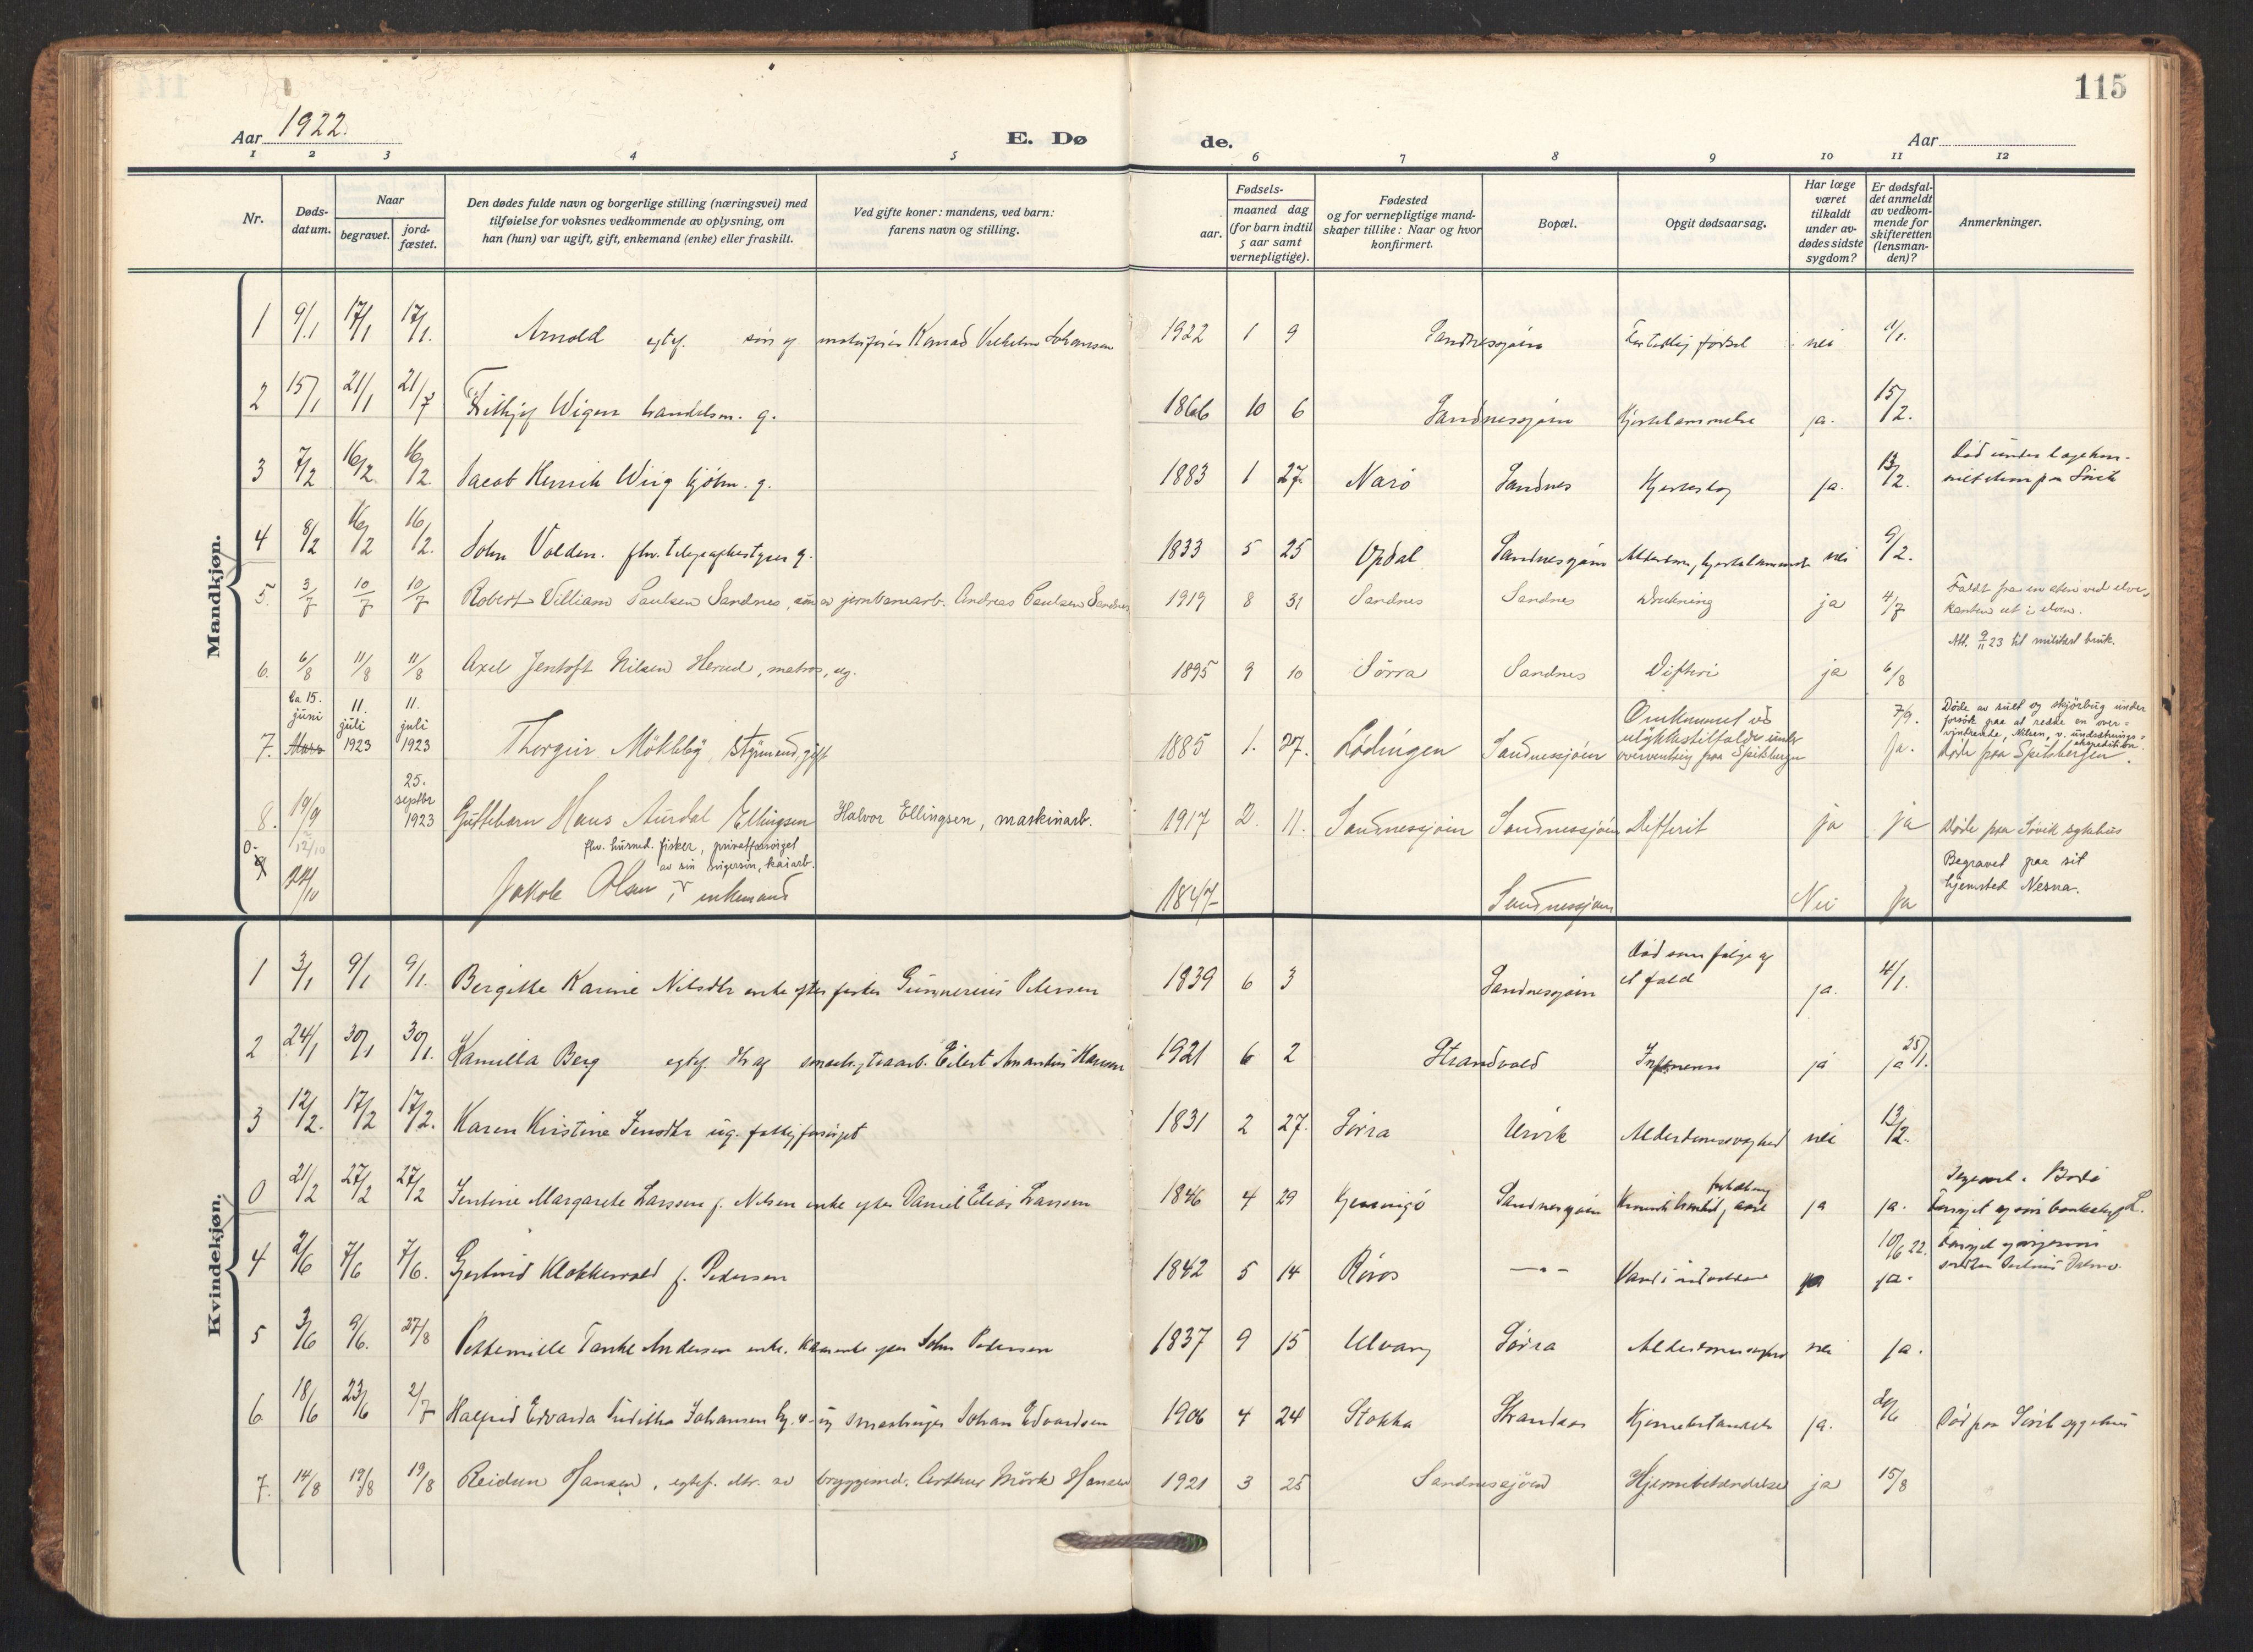 115
Aar 1922.
E. Døde.
Aar
1 2 3 4 5 6 7 8 9 10 11 12
Nr.
Døds-
datum.
Naar
begravet.
jord-
fæstet.
Den dødes fulde navn og borgerlige stilling (næringsvei) med
tilføielse for voksnes vedkommende av oplysning, om
han (hun) var ugift, gift, enkemand (enke) eller fraskilt.
Ved gifte koner: mandens, ved barn:
farens navn og stilling.
Fødsels-
aar.
maaned dag
(for barn indtil
5 aar samt
vernepligtige).
Fødested
og for vernepligtige mand-
skaper tillike: Naar og hvor
konfirmert.
Bopæl.
Opgit dødsaarsag.
Har læge
været
tilkaldt
under av-
dødes sidste
sygdom?
Er dødsfal-
det anmeldt
av vedkom-
mende for
skifteretten
(lensman-
den)?
Anmerkninger.
Mandkjøn.
1 9/1 17/1 17/1. Arnold egtef. søn af Konrad Vilhelm Johansen 1922 1 9 Sandnessjøen For tidlig fødsel nei
2 15/1 21/1 21/7 Fritjof Wigen handelsm. g. 1866 10 6 Sandnessjøen Hjertelammelse ja. 15/2.
3 7/2 16/2 16/2. Jacob Henrik Wiig kjøbm. g. 1883 1 27. Narö Sandnes Hjerteslag ja. 13/2.
4 8/2 16/2 16/2. John Volden. fhv. telegrafbestyrer g. 1833 5 25 Opdal Sandnessjøen Alderdom, hjertelammelse nei 9/2.
5. 3/7 10/7 10/7 Robert William Paulsen Sandnes, søn av jernbanearb. Andreas Paulsen Sandnes 1919 8 31 Sandnes Sandnes Drukning ja 4/7 Faldt fra en sten ved elve-
kanten ut i elven.
Att. 9/11 23 til militært bruk.
6. 6/8 11/8 11/8 Axel Jentoft Nilsen Herud, matros, ug. 1895 9 10 Sørra Sandnes Difteri ja 6/8
7. Ca 15. juni 11. juli 1923 11. juli 1923 Thorgeir Mökleby, styrmand, gift 1885 1. 27. Lødingen Sandnessjøen Omkommet ved
ulykkestilfælde under
overvintring paa Spitsbergen 7/9. Ja. Døde av sult og skjørbug under
forsøk paa at redde en over-
vintrende, Nilsen, v. undsætnings-
ekspedition.
Døde paa Spitsbergen.
8. 19/9 25. septbr 1923 Guttebarn Hans Aurdal Ellingsen Halvor Ellingsen, maskinarb. 1917 2. 11. Sandnessjøen Sandnessjøen Defterit ja ja Døde paa Søvik sykehus
0. fhv. husmd. fisker, privatforsørget
av sin svigersøn, kaiarb.
Jakob Olsen, enkemand 1847 Sandnessjøen Nei Ja Begravet paa sit
hjemsted Nesna.
Kvindekjøn.
1 3/1 9/1 9/1. Bergitte Karine Nilsdtr enke efter fisker Gunnerius Petersen 1839 6 3 Sandnessjøen Død som følge af
et fald ja. 4/1.
2 24/1 30/1 30/1. Kamilla Berg egtef. dtr af Eilert Amandus Hansen 1921 6 2 Strandvold ja ja 25/1.
3 12/2. 17/2 17/2. Karen Kirstine Jensdtr ug. fattigforsørget 1831 2 27. Sørra Alderdomssvaghed nei 13/2.
0 21/2 27/2 27/2 Jentine Margarete Larssen f. Nilsen enke efter Daniel Elias Larssen 1846 4 29 Sandnessjøen ja ja.
4 2/6 7/6 7/6. Gjertrud Klokkervold f. Pedersen 1842 5 14 Røros —"— ja 10/6 22. ja.
5 3/6 9/6. 27/8 Pettemille Tanke Andersen enke. efter John Pedersen 1837 9 15 Ulvang Sørra nei ja.
6 18/6 23/6 2/7 Edvarda Johansen Johan Edvardsen 1906 4 24 Stokka Strandaas Hjernebetændelse ja. 20/6 Død paa Søvik sygehus
7. 14/8 19/8 19/8 Reidun Hansen, egtef. dtr. av bryggemd. Arthur Mørk Hansen 1921 3 25 Sandnessjøen Hjernebetændelse ja 15/8